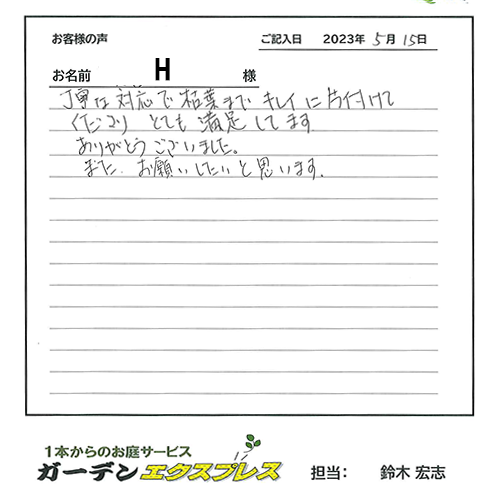 お客様の声 ご記入日 2023年 5月 15日
お名前 H 様
丁寧な対応で枯葉まで キレイに片付けて
くださり とても満足してます
ありがとうございました。
また、お願いしたいと思います。
1本からのお庭サービス
ガーデンエクスプレス 担当： 鈴木 宏志